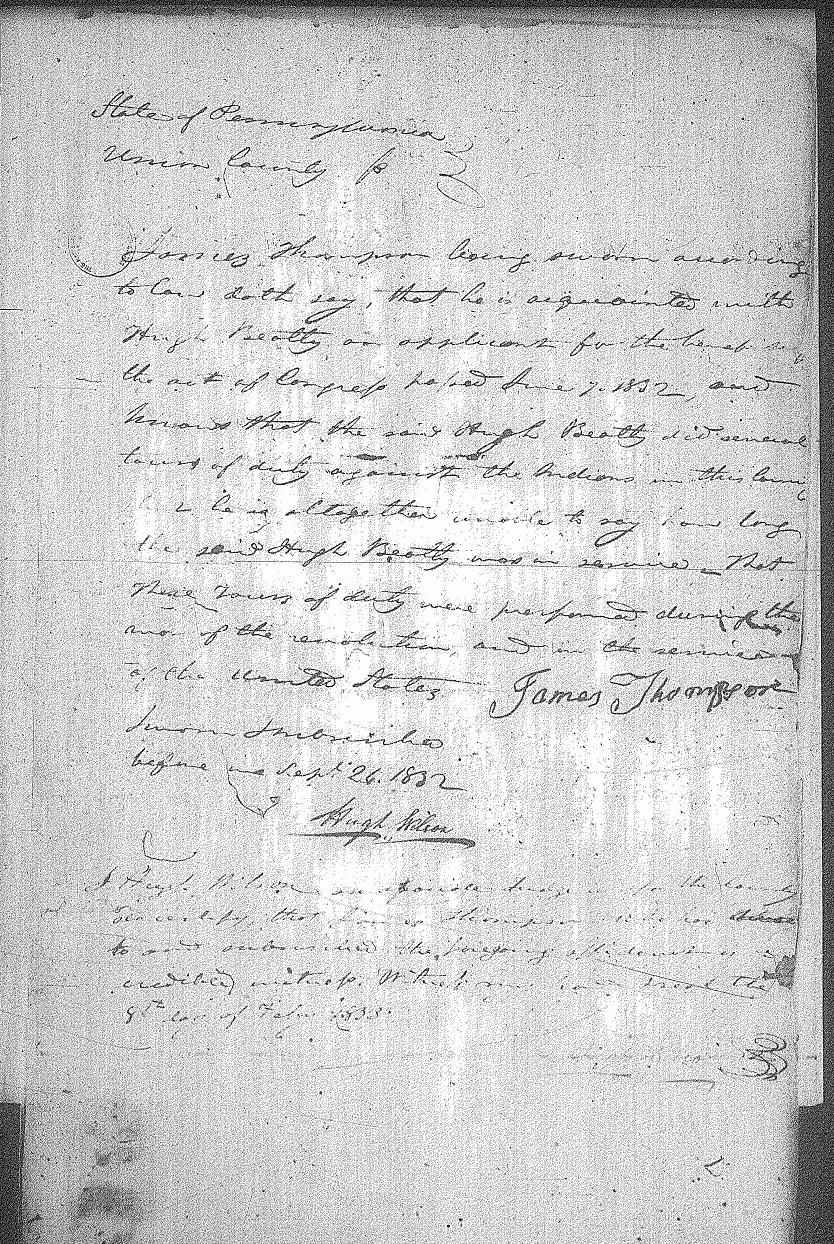 State of Pennsylvania
Union County ss
James Thompson being sworn according
to law doth say, that he is acquainted with
Hugh Beatty an applicant for the benefit of
the act of Congress passed June 7. 1832, and
knows that the said Hugh Beatty did several
tours of duty against the Indians in this
he is altogether unable to say how long
the said Hugh Beatty was in service - That
these Tours of duty were performed during the
war of the revolution, and in the service
of the United States James Thompson
Sworn & subscribed
before me Sept. 26. 1832
Hugh Wilson
I Hugh Wilson an associate Judge in for the county
do certify, that James Thompson who has sworn
to and subscribed the foregoing affidavit is a
credible witness. Witness my hand the
8th day of Feby 1833